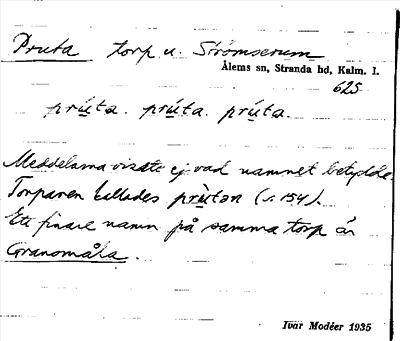 Pruta torp u. Strömserum
Ålems sn, Stranda hd, Kalm. l.
625
prúta. prúta. prúta.
Meddelarna visste ej vad namnet betydde.
Torparen kallades prùtən (s. 154).
Ett finare namn på samma torp är
Granomåla.
Ivar Modéer 1935